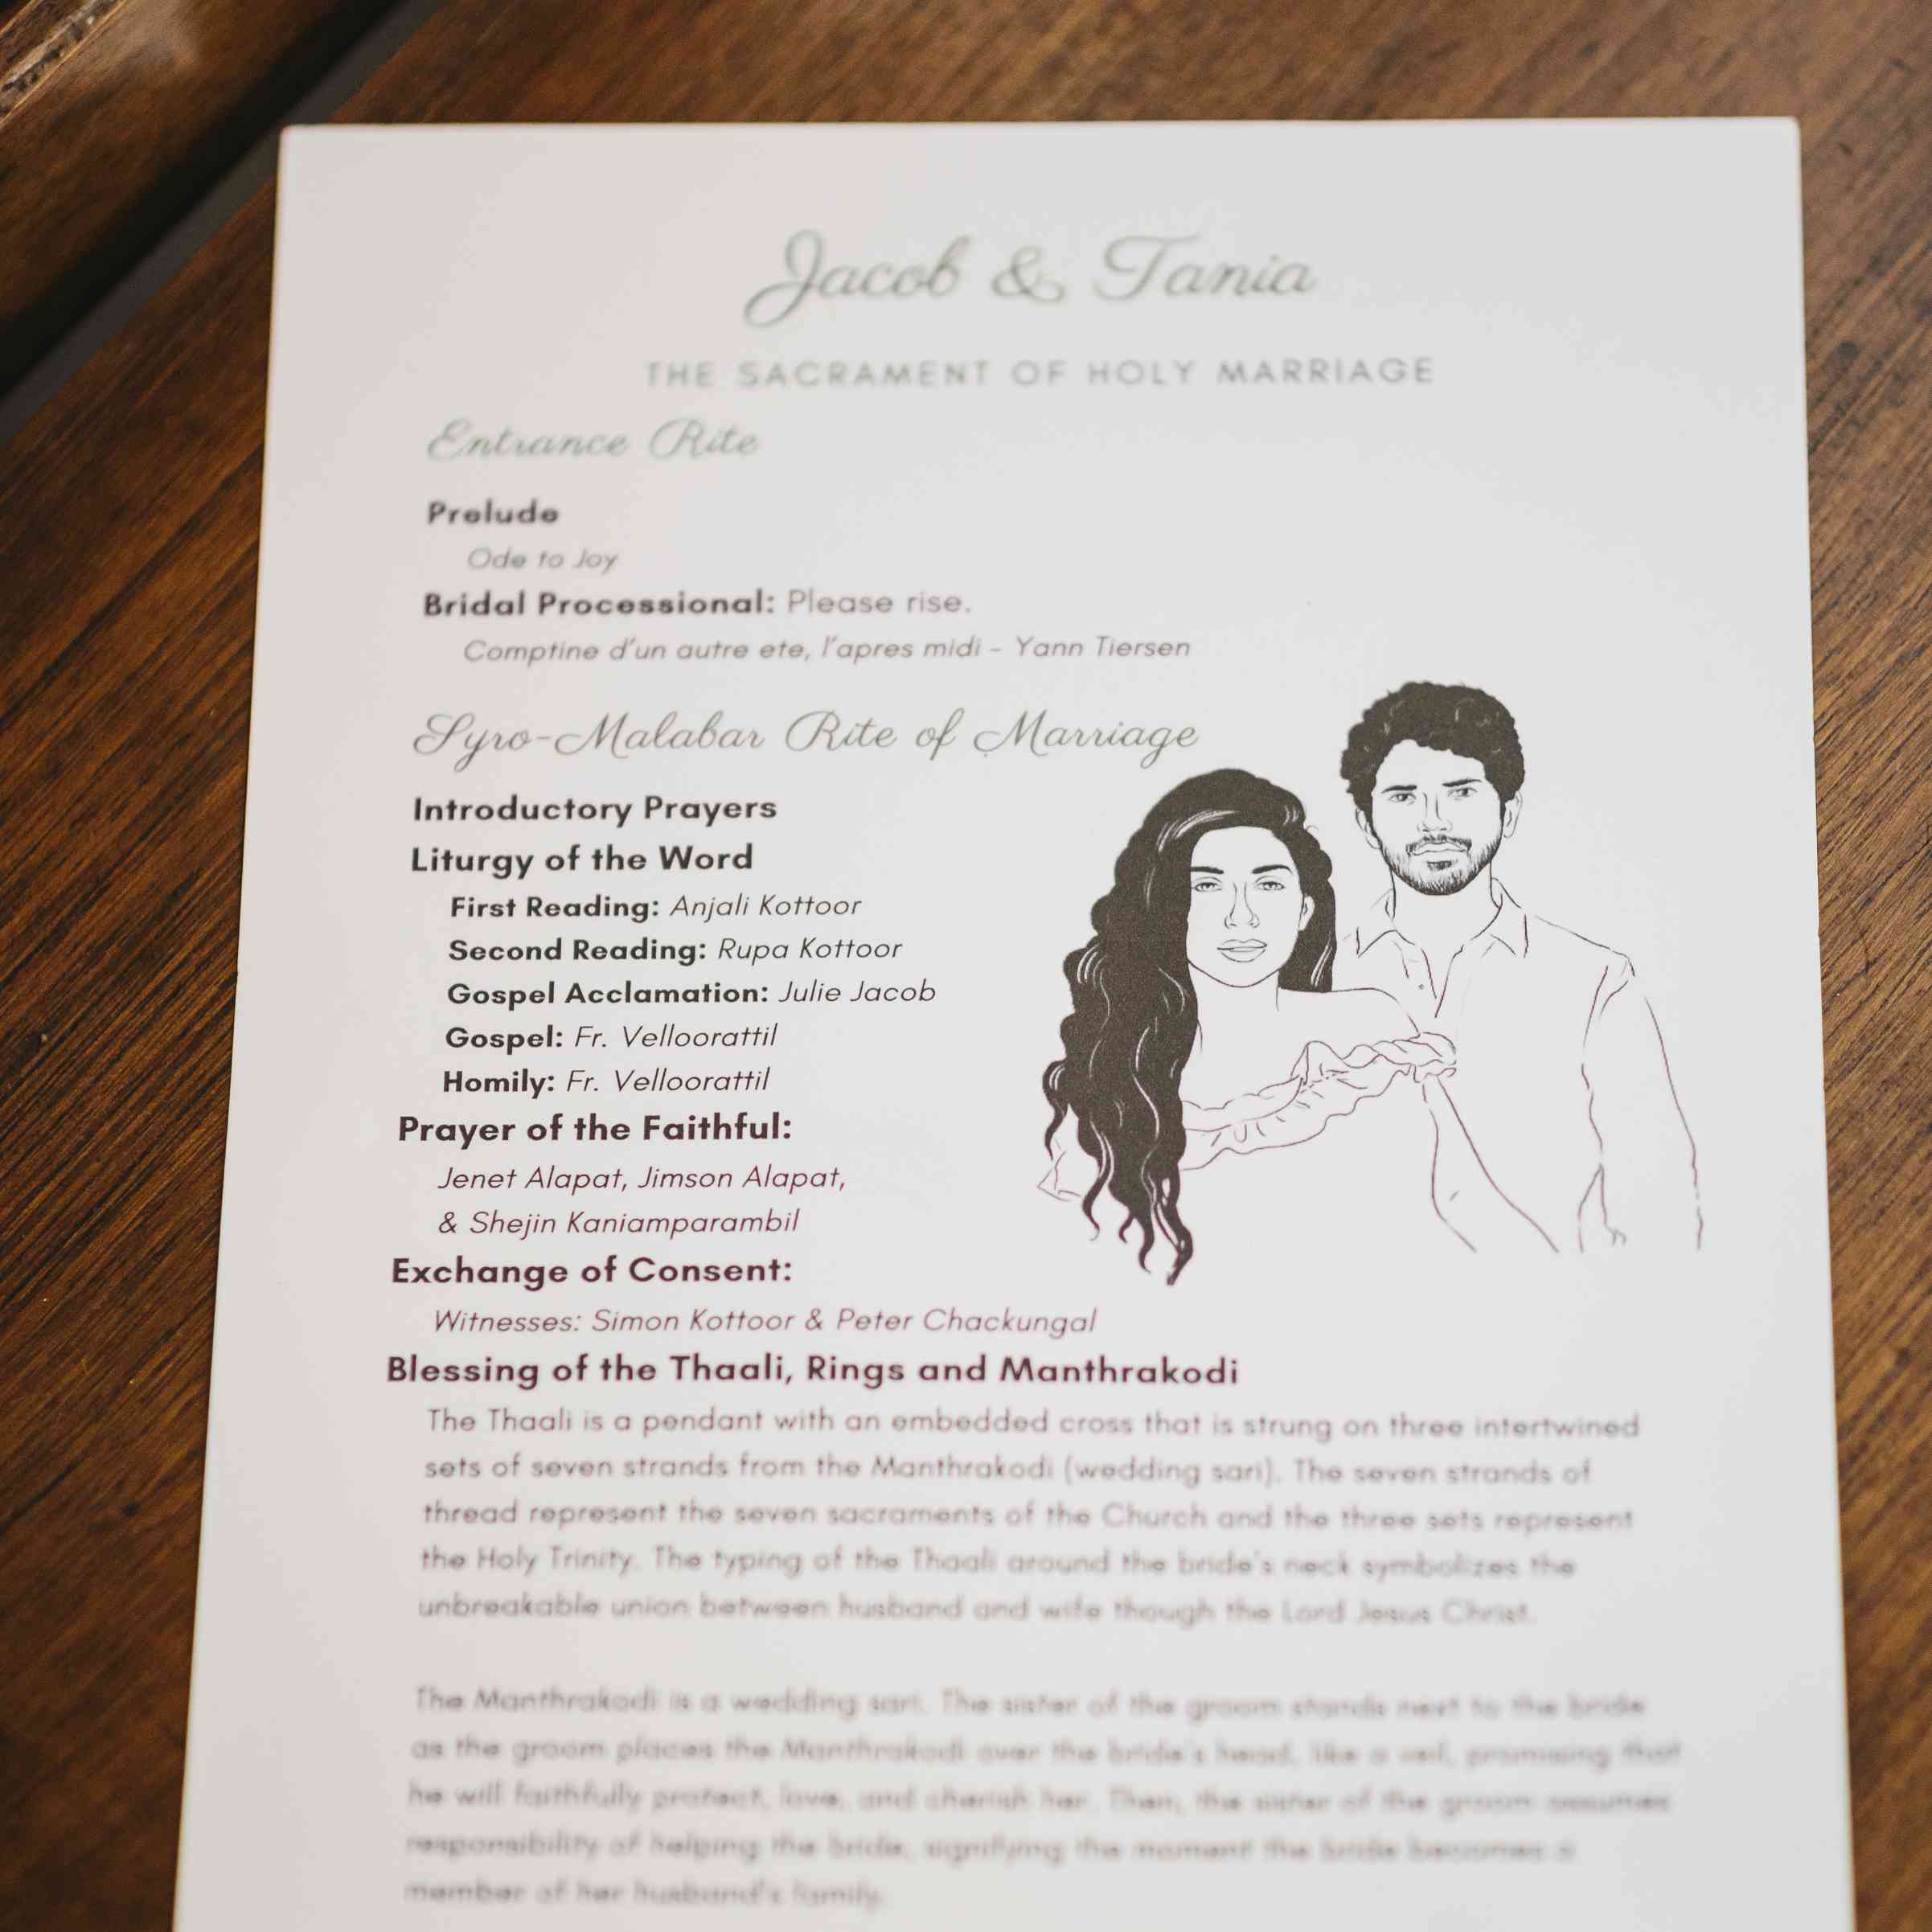 Jacob & Tania
THE SACRAMENT OF HOLY MARRIAGE
Entrance Rite
Prelude
Ode to Joy
Bridal Processional: Please rise.
Comptine d'un autre ete, l'apres midi - Yann Tiersen
Syro-Malabar Rite of Marriage
Introductory Prayers
Liturgy of the Word
First Reading: Anjali Kottoor
Second Reading: Rupa Kottoor
Gospel Acclamation: Julie Jacob
Gospel: Fr. Velloorattil
Homily: Fr. Velloorattil
Prayer of the Faithful:
Jenet Alapat, Jimson Alapat,
& Shejin Kaniamparambil
Exchange of Consent:
Witnesses: Simon Kottoor & Peter Chackungal
Blessing of the Thaali, Rings and Manthrakodi
The Thaali is a pendant with an embedded cross that is strung on three intertwined
sets of seven strands from the Manthrakodi (wedding sari). The seven strands of
thread represent the seven sacraments of the Church and the three sets represent
the Holy Trinity. The typing of the Thaali around the bride's neck symbolizes the
unbreakable union between husband and wife though the Lord Jesus Christ.
The Manthrakodi is a wedding sari. The sister of the groom stands next to the bride
as the groom places the Manthrakodi over the bride's head, like a veil, promising that
he will faithfully protect, love, and cherish her. Then, the sister of the groom assumes
responsibility of helping the bride, signifying the moment the bride becomes a
member of her husband's family.